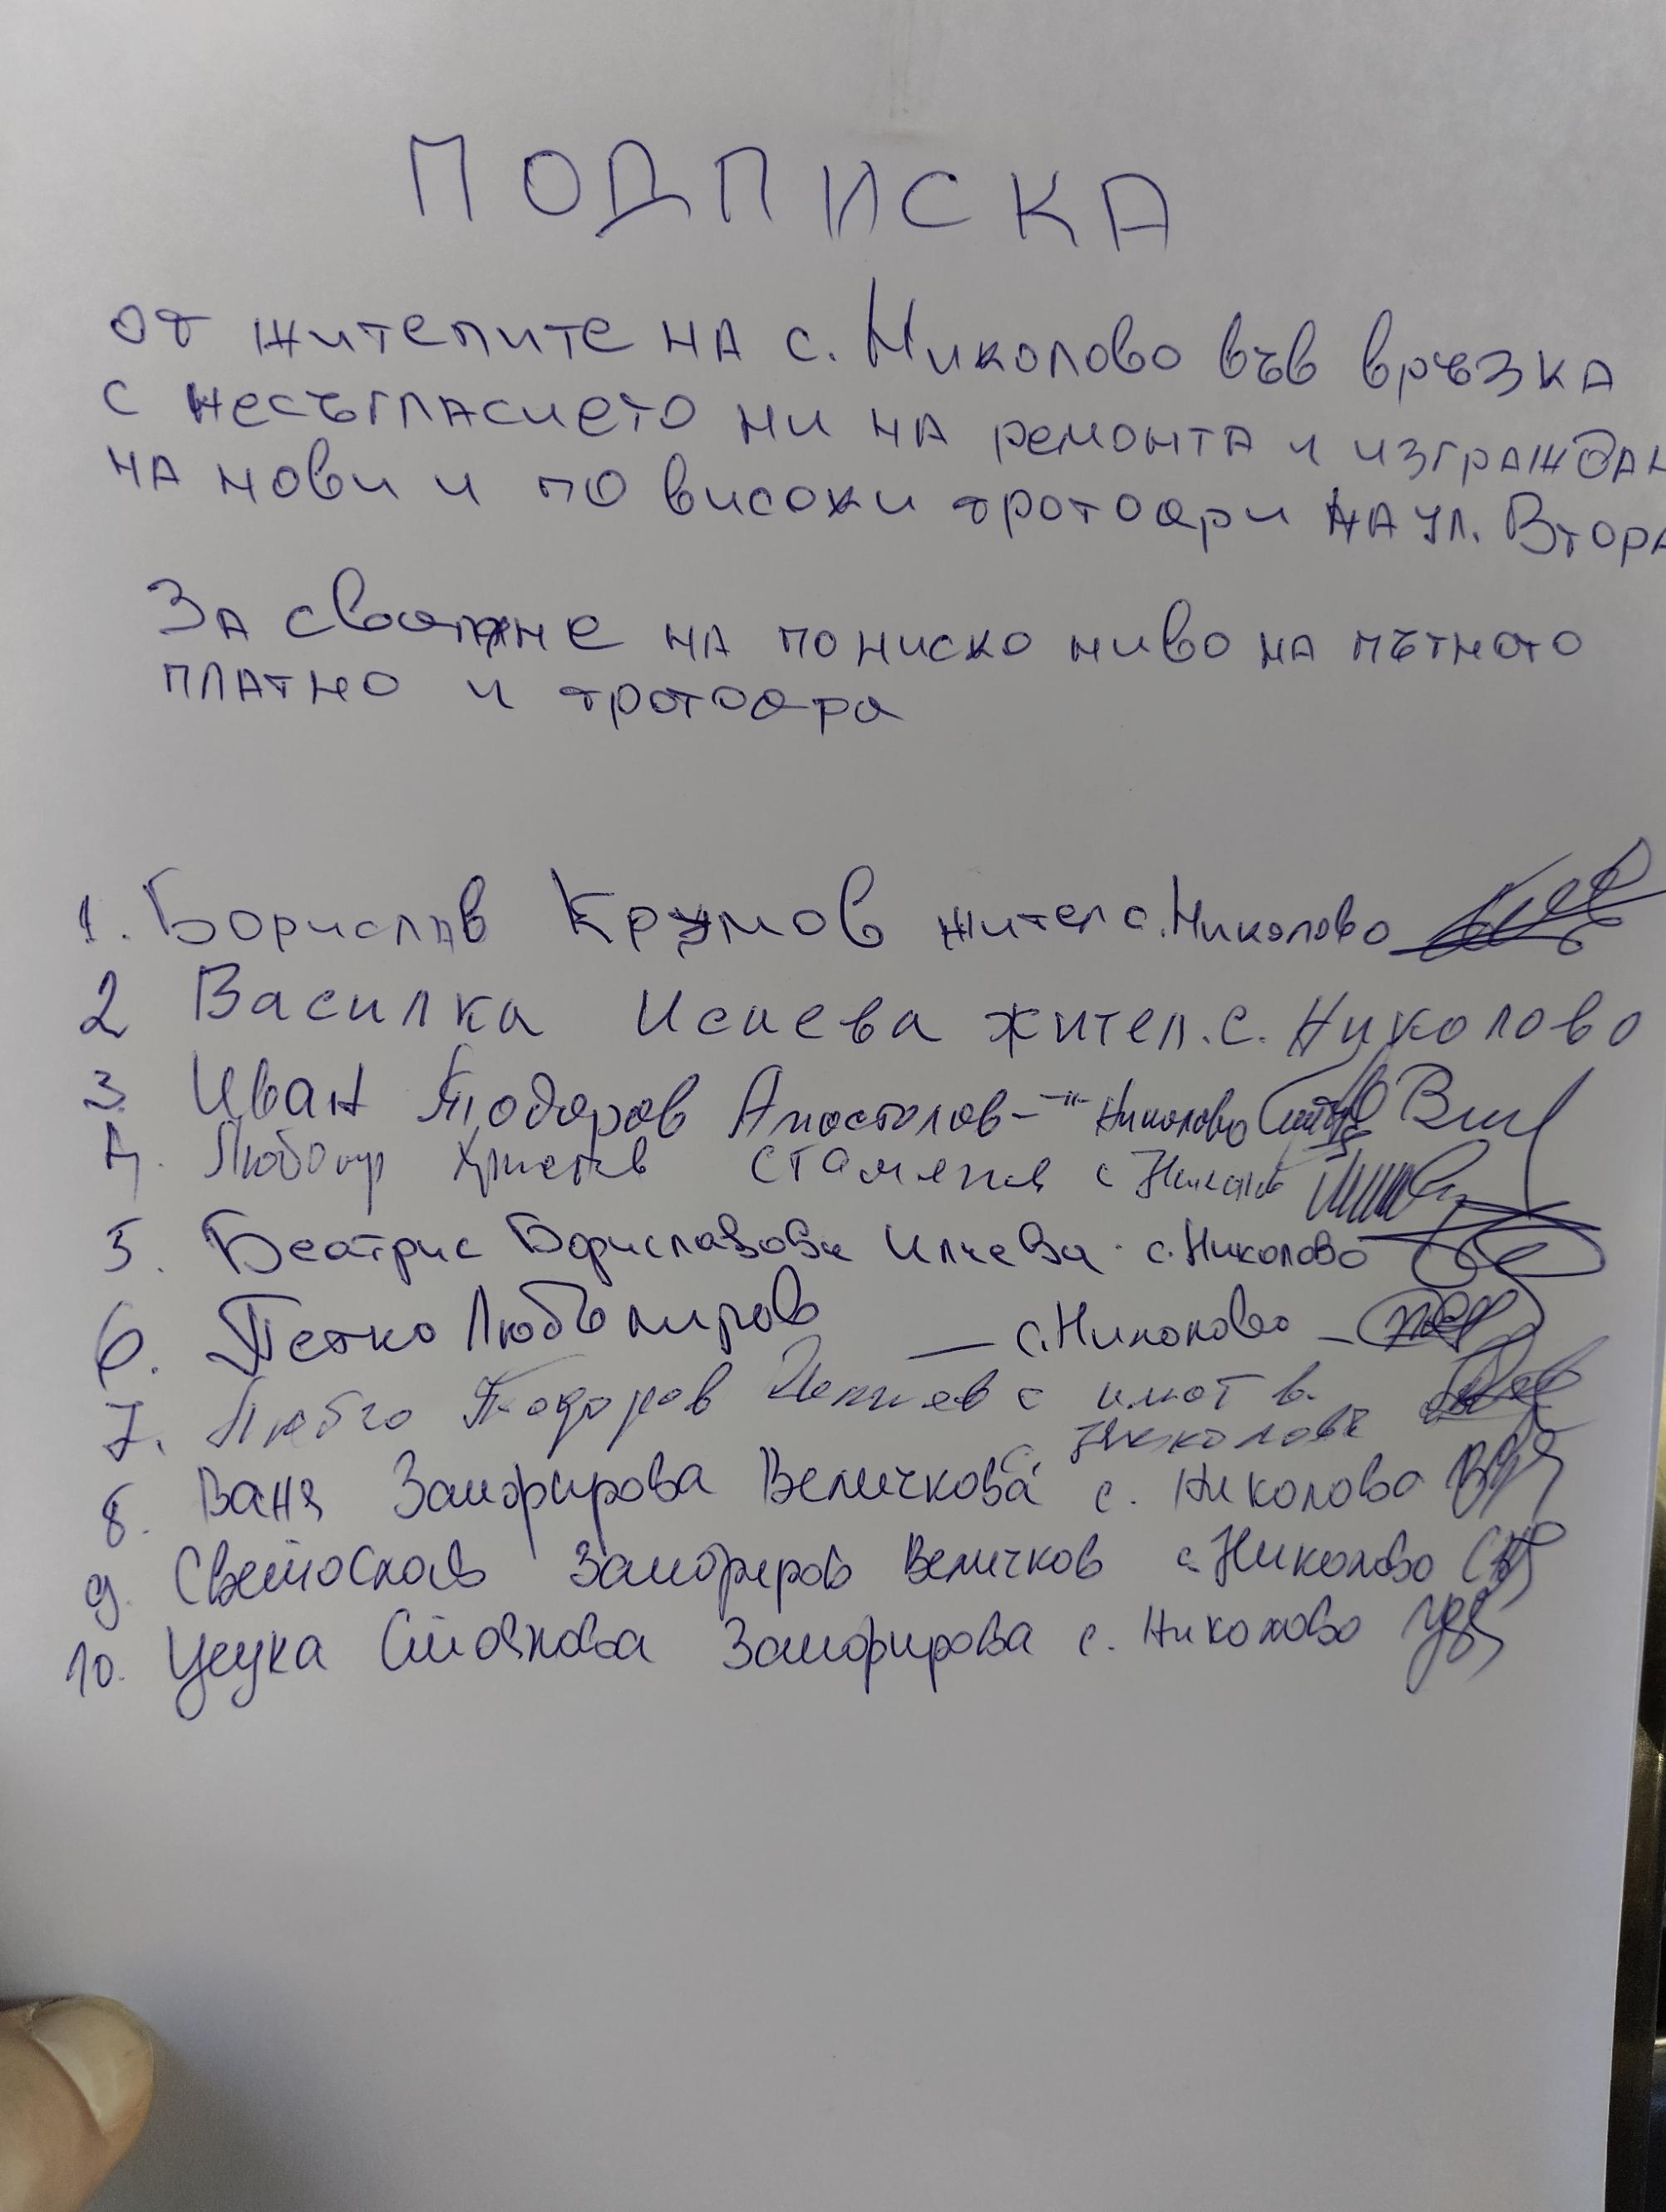 ПОДПИСКА
от жителите на с. Николово във връзка
с несъгласието ни на ремонта и изграждан
на нови и по високи тротоари на ул. Втора
За сваляне на по ниско ниво на пътното
платно и тротоара
1. Борислав Крумов жител с. Николово
2 Василка Исаева жител. с. Николово
3. Иван Тодоров Апостолов - -"- Николово
4. Любомир Христов с Николово
5. Беатрис Бориславова Илчева. с. Николово
6. Петко Любомиров — с. Николово -
7. Любчо Тодоров с имот в.
с. Николово
8. Ваня Замфирова Величкова с. Николово
9. Светослав Замфиров Величков с. Николово
10. Цецка Стоянова Замфирова с. Николово